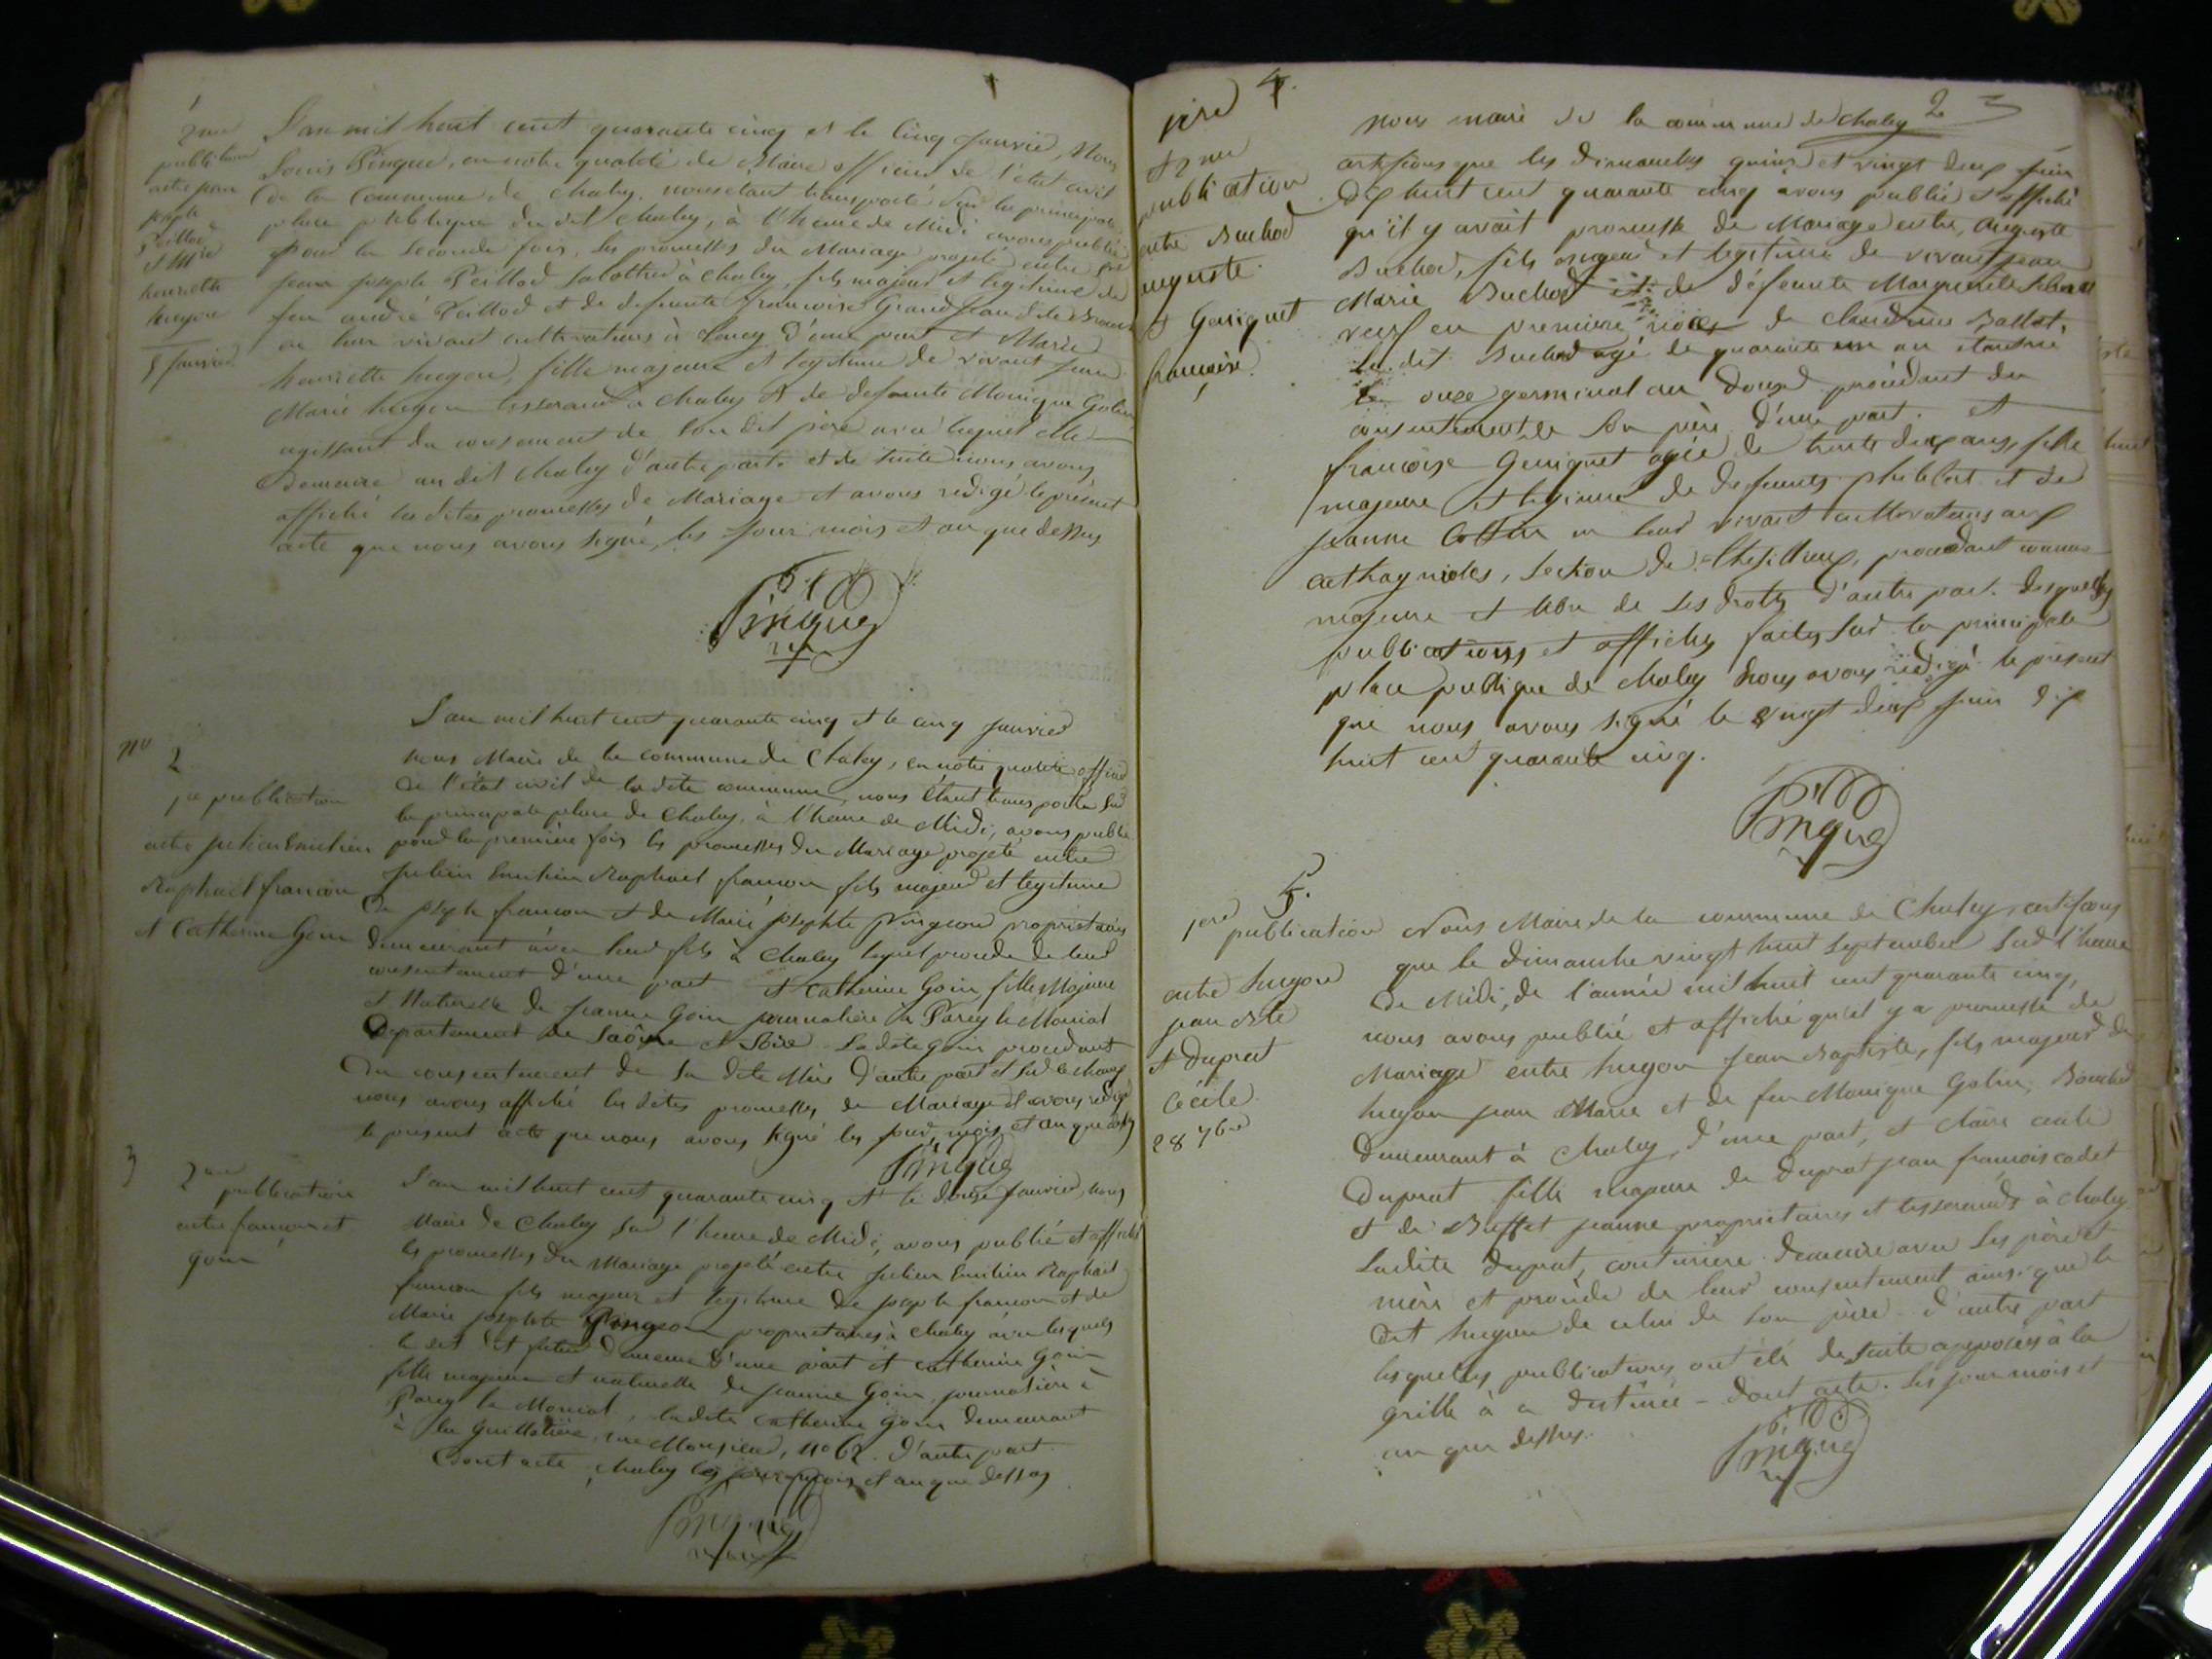 1
2me
publication
entre jean
joseph
Peillod
et Mie
henriette
hugon
5 janvier
L'an mil huit cent quarante cinq et le cinq janvier, Nous
Louis Pingue, en notre qualité de Maire officier de l'état civil
de la Commune de Chaley, nous étant transporté sur la principale
place publique du dit Chaley, à l'heure de Midi avons publié
pour la seconde fois, les promesses du Mariage projeté entre
jean joseph Peillod à Chaley, fils majeur et legitime de
feu andré Peillod et de defunte francoise Grandjean
en leur vivant cultivateurs à d'une part et Marie
henriette hugon, fille majeure et legitime de vivant jean
Marie hugon tisserand à Chaley et de defunte Monique Golin
agissant du consentement de son dit père avec lequel elle
demeure au dit Chaley d'autre part. et de suite nous avons
affiché les dites promesses de Mariage et avons redigé le présent
acte que nous avons signé, les jour mois et an que dessus
Pingue
no 2
1re publication
entre julien Emilien
Raphael francon
et Catherine Goin
L'an mil huit cent quarante cinq et le cinq janvier
nous Maire de la commune de Chaley, en notre qualité officier
de l'état civil de la dite commune, nous étant transporté sur
la principale place de Chaley, à l'heure de Midi, avons publié
pour la première fois les promesses du Mariage projeté entre
julien Emilien Raphael francon fils majeur et legitime
de joseph francon et de Marie josephte Pingeon proprietaires
demeurant avec leur fils à Chaley lequel procede de leur
consentement d'une part et Catherine Goin fille Majeure
et Naturelle de jeanne Goin journalière à Parey le Monial
Departement de Saône et Loire. La dite Goin procedant
du consentement de sa dite Mère d'autre part et sur le champ
nous avons affiché les dites promesses de Mariage et avons redigé
le present acte que nous avons signé les jour, mois et an que dessus
Pingue
3
2me
publication
entre francon et
goin
L'an mil huit cent quarante cinq et le douze janvier, nous
Maire de Chaley sur l'heure de Midi, avons publié et affiché
les promesses du Mariage projeté entre julien Emilien Raphael
francon fils majeur et legitime de joseph francon et de
Marie josephte Pingeon proprietaires à Chaley avec lesquels
le dit futur demeure d'une part et catherine Goin
fille majeure et naturelle de jeanne Goin, journalière à
Parey le Monial, ladite Catherine Goin demeurant
à la Guillotière, rue Monsieur, no 62. d'autre part
Dont acte, Chaley les jour, mois et an que dessus
Pingue
2
4.
1ere
et 2me
publication
entre Buchod
auguste
et Geniquet
francoise.
Nous maire de la commune de Chaley
certifions que les dimanches quinze et vingt deux juin
dix huit cent quarante cinq avons publié et affiché
qu'il y avait promesse de Mariage entre, auguste
Buchod, fils majeur et legitime de vivant jean
Marie Buchod et de défunte Marguerite
veuf en premiere noces de claudine Ballet.
le dit Buchod agé de quarante un an étant né
le onze germinal an douze procédant du
consentement de son père d'une part. et
francoise Geniquet agée de trente deux ans, fille
majeure et legitime de defunts philibert et de
jeanne en leur vivant cultivateurs aux
cathagnoles, section de procédant comme
majeure et libre de ses droits d'autre part. desquelles
publications et affiches faites sur la principale
place publique de Chaley Nous avons redigé le présent
que nous avons signé le vingt deux juin dix
huit cent quarante cinq.
Pingue
5.
1ere
publication
entre hugon
jean Bte
et Duprat
Cécile
28 7bre
Nous Maire de la commune de Chaley, certifions
que le dimanche vingt huit septembre sur l'heure
de Midi, de l'année mil huit cent quarante cinq,
nous avons publié et affiché qu'il y a promesse de
Mariage entre hugon jean Baptiste, fils majeur de
hugon jean Marie et de feu Monique Golin,
demeurant à Chaley, d'une part, et claire cecile
Duprat fille majeure de Duprat jean francois cadet
et de Buffet jeanne proprietaires et tisserands à Chaley
Ladite Duprat, couturiere demeure avec ses père et
mère et procède de leur consentement ainsi que le
dit hugon de celui de son père d'autre part
lesquelles publications ont été de suite apposées à la
grille à ce destinée - dont acte. les jour mois et
an que dessus.
Pingue